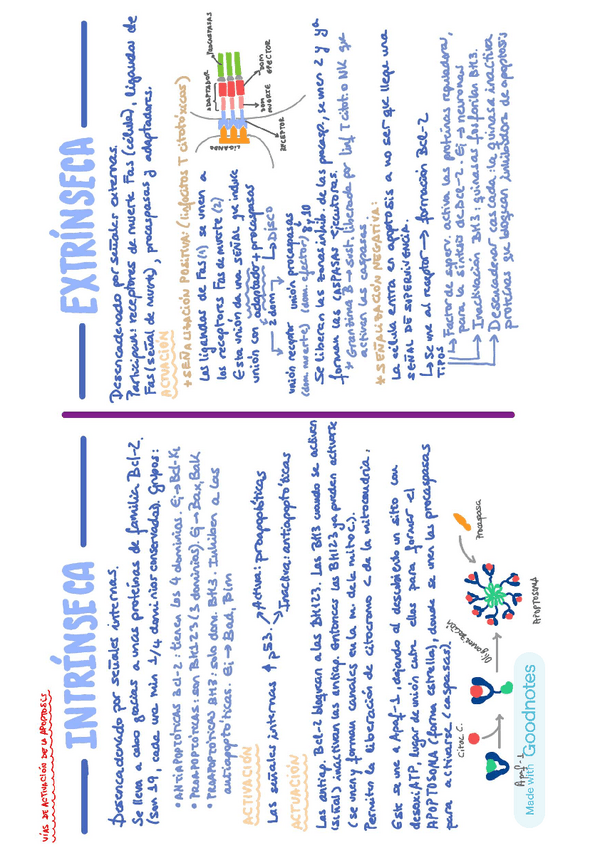 VÍAS DE ACTIVACIÓN DE LA APOPTOSIS
INTRÍNSECA
Desencadenado por señales internas.
Se lleva a cabo gracias a unas proteínas de familia Bcl-2.
(son 19, cada una min 1/4 dominios conservadas). Grupos:
• ANTIAPOPTÓTICAS Bcl-2: tienen los 4 dominios. Ej→Bcl-XL
• PROAPOPTÓTICAS: son BH123 (3 dominios). Ej→Bax, Bak
• PROAPOPTÓTICAS BH3: solo dom. BH3. Inhiben a las
antiapoptóticas. Ej→Bad, Bim
ACTIVACIÓN
Las señales internas ↑ p53.
Activa: proapoptóticas
Inactiva: antiapoptóticas
ACTUACIÓN
Las antiap. Bcl-2 bloquean a las BH123. Las BH3 cuando se activan
(señal) inactivan las antiap. Entonces las BH123 ya pueden activarse
(se unen y forman canales en la m. de la mitoc).
Permiten la liberación de citocromo c de la mitocondria.
Este se une a Apaf-1, dejando al descubierto un sitio con
desoxiATP, lugar de unión entre ellas para formar el
APOPTOSOMA (forma estrella), donde se unen las procaspasas
para activarse (caspasas).
Citoc C.
Apaf-1
Oligomerización
Procaspasa
APOPTOSOMA
Made with Goodnotes
EXTRÍNSECA
Desencadenado por señales externas.
Participan: receptores de muerte Fas (célula), ligandos de
Fas (señal de muerte), procaspasas y adaptadores.
ACTUACIÓN
* SEÑALIZACIÓN POSITIVA: (linfocitos T citotóxicos)
Los ligandos de Fas (1) se unen a
los receptores Fas de muerte (2)
Esta unión da una señal que induce
unión con adaptador + procaspasas
2 dom → DISCO
unión receptor unión procaspasas
(dom. muerte) (dom. efector) 8, 10
Se liberan las zonas inhib. de las procasp, se unen 2 y ya
forman las CASPASAS EJECUTORAS.
* Granzima B → secret. liberada por linf T citot. o NK que
activan las caspasas
ADAPTADOR
PROCASPASAS
LIGANDO
DOM EFECTOR
DOM MUERTE
RECEPTOR
* SEÑALIZACIÓN NEGATIVA:
La célula entra en apoptosis a no ser que llegue una
SEÑAL DE SUPERVIVENCIA.
↳ Se une al receptor → formación Bcl-2
TIPOS
↳ Factor de superv. activa las proteínas reguladoras,
para la síntesis de Bcl-2. Ej → neuronas
↳ Inactivación BH3: quinasas fosforilan BH3.
↳ Desencadenar cascada: la quinasa inactiva
proteínas que bloquean inhibidores de apoptosis